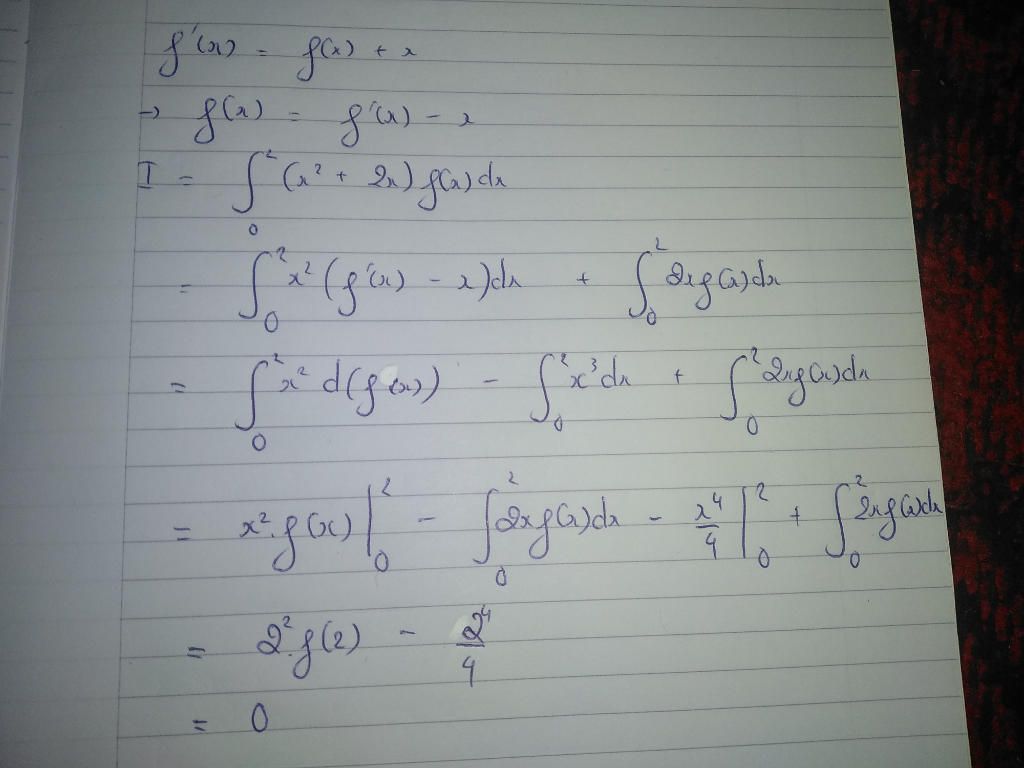 f'(x) = f(x) + x
→ f(x) = f'(x) - x
I = ∫₀² (x² + 2x) f(x) dx
= ∫₀² x² (f'(x) - x) dx + ∫₀² 2x f(x) dx
= ∫₀² x² d(f(x)) - ∫₀² x³ dx + ∫₀² 2x f(x) dx
= x². f(x) |₀² - ∫₀² 2x f(x) dx - x⁴/4 |₀² + ∫₀² 2x f(x) dx
= 2². f(2) - 2⁴/4
= 0